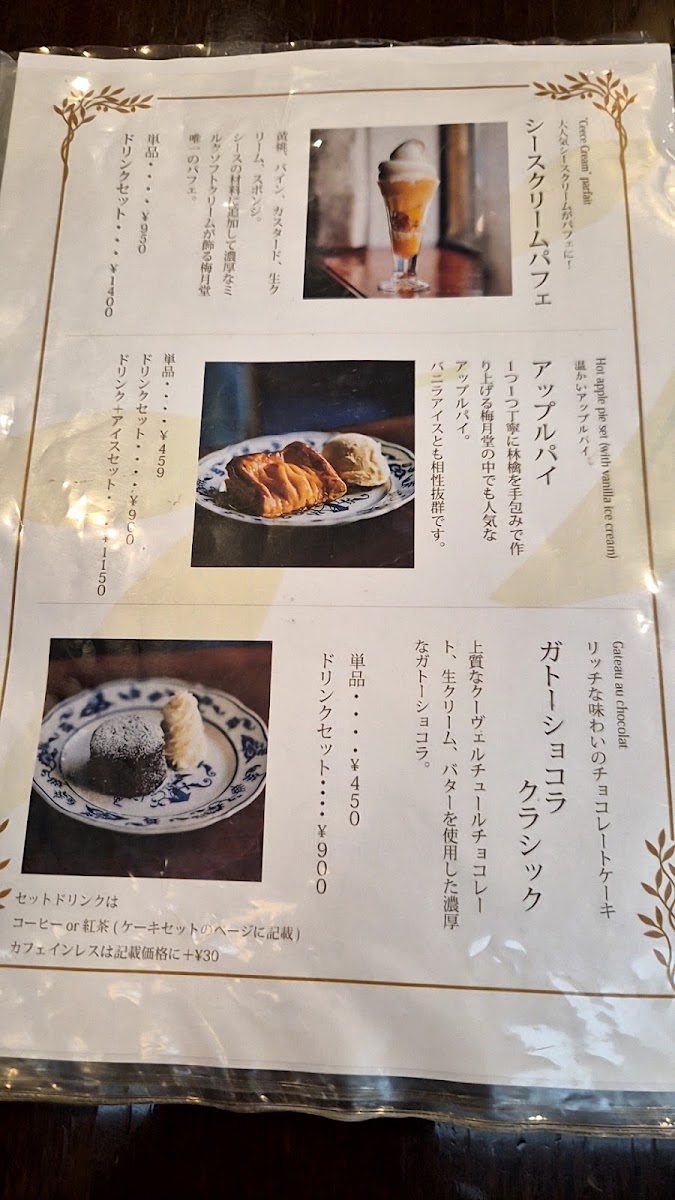 "Ceece Cream" parfait
大人気シースクリームがパフェに！
シースクリームパフェ
黄桃、パイン、カスタード、生ク
リーム、スポンジ。
シースの材料に追加して濃厚なミ
ルクソフトクリームが飾る梅月堂
唯一のパフェ。
単品・・・・¥950
ドリンクセット・・・・¥1400
Hot apple pie set (with vanilla ice cream)
温かいアップルパイ。
アップルパイ
1つ1つ丁寧に林檎を手包みで作
り上げる梅月堂の中でも人気な
アップルパイ。
バニラアイスとも相性抜群です。
単品・・・・¥459
ドリンクセット・・・・¥900
ドリンク+アイスセット・・・¥1150
Gateau au chocolat
リッチな味わいのチョコレートケーキ
ガトーショコラ
クラシック
上質なクーヴェルチュールチョコレー
ト、生クリーム、バターを使用した濃厚
なガトーショコラ。
単品・・・・¥450
ドリンクセット・・・・¥900
セットドリンクは
コーヒー or 紅茶 ( ケーキセットのページに記載 )
カフェインレスは記載価格に＋¥30